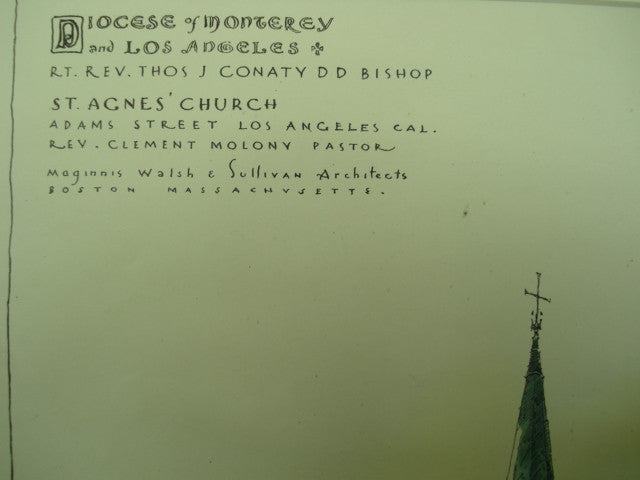 DIOCESE of MONTEREY
and LOS ANGELES
RT. REV. THOS J CONATY D D BISHOP
ST. AGNES' CHURCH
ADAMS STREET LOS ANGELES CAL.
REV. CLEMENT MOLONY PASTOR
Maginnis Walsh & Sullivan Architects
BOSTON MASSACHVSETTS.